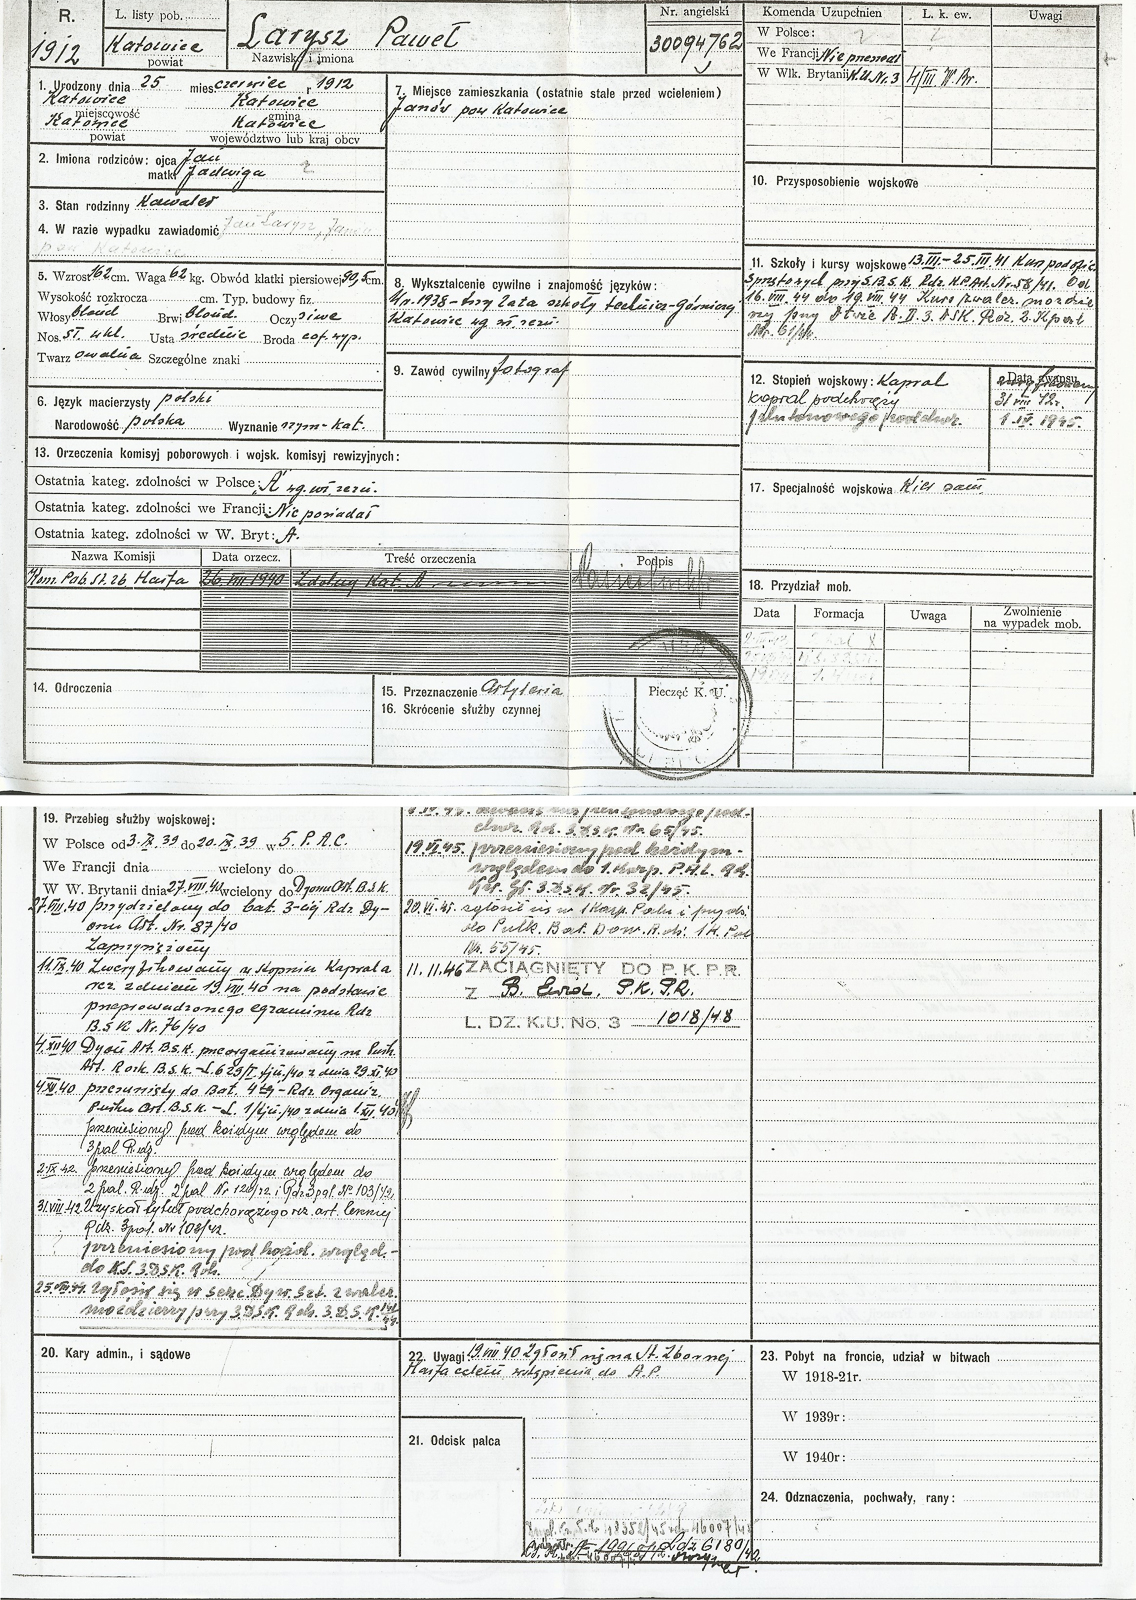 R.
1912
L. listy pob.
Katowice
powiat
Larysz Paweł
Nazwisko i imiona
Nr. angielski
30094762
Komenda Uzupełnien
L. k. ew.
Uwagi
W Polsce:
We Francji Nie przeszedł
W Wlk. Brytanii K.U. Nr. 3 4/III W. Br.
1. Urodzony dnia 25 mies czerwiec r 1912
Katowice Katowice
miejscowość gmina
Katowice Katowice
powiat województwo lub kraj obcy
2. Imiona rodziców: ojca Jan
matki Jadwiga
3. Stan rodzinny Kawaler
4. W razie wypadku zawiadomić Jan Larysz, Janów
pow. Katowice
5. Wzrost 162 cm. Waga 62 kg. Obwód klatki piersiowej 90,5 cm.
Wysokość rozkrocza cm. Typ. budowy fiz.
Włosy blond Brwi blond. Oczy siwe
Nos. st. wkl. Usta średnie Broda
Twarz owalna Szczególne znaki
6. Język macierzysty polski
Narodowość polska Wyznanie rzym-kat.
7. Miejsce zamieszkania (ostatnie stałe przed wcieleniem)
Janów pow Katowice
8. Wykształcenie cywilne i znajomość języków:
Ur. 1938 - trzy lata szkoły techniczn-Górniczej
Katowice wg wł. zezn.
9. Zawód cywilny fotograf
10. Przysposobienie wojskowe
11. Szkoły i kursy wojskowe 13.III-25.III.41 Kurs podofic.
Sprzętowych przy S.B.S.K. Rdz. K.P.Art. Nr. 58/41. Od
16.VIII.44 do 19.VIII.44 Kurs zwalcz. moździe
rzy przy D-twie A. II. 3. DSK. Roz. 2. Kpart
Nr. 61/44.
12. Stopień wojskowy: Kapral
Data awansu
zweryfikowany
kapral podchorąży 31 VIII 42r.
plutonowego podchor. 1.IV. 1945.
13. Orzeczenia komisyj poborowych i wojsk. komisyj rewizyjnych:
Ostatnia kateg. zdolności w Polsce: "A" wg. wł. zezn.
Ostatnia kateg. zdolności we Francji: Nie posiadał
Ostatnia kateg. zdolności w W. Bryt: A.
Nazwa Komisji Data orzecz. Treść orzeczenia Podpis
Kom. Pob. St. Zb Haifa 26.VIII 1940 Zdolny Kat. A
14. Odroczenia
15. Przeznaczenie Artyleria
16. Skrócenie służby czynnej
Pieczęć K. U.
17. Specjalność wojskowa Kier sam.
18. Przydział mob.
Data Formacja Uwaga Zwolnienie
na wypadek mob.
19. Przebieg służby wojskowej:
W Polsce od 3.IX.39 do 20.IX.39 w 5. P.A.C.
We Francji dnia wcielony do
W W. Brytanii dnia 27.VIII.40 wcielony do Dyonu Art. B.S.K.
27.VIII.40 przydzielony do bat. 3-ciej Rdz Dy-
onu Art. Nr. 87/40
Zaprzysiężony
11.IX.40 Zweryfikowany w stopniu Kaprala
rez. z dniem 19.VIII.40 na podstawie
przeprowadzonego egzaminu Rdz
B.S.K Nr. 76/40
4.XII.40 Dyon Art. B.S.K. przeorganizowany na Pułk
Art. Rozk. B.S.K. - L. 629/I. tjn./40 z dnia 29.XI.40
4.XII.40 przesunięty do Bat. 4-tej - Rdz. Organiz.
Pułku Art. B.S.K. - L. 1/tjn./40 z dnia 1.XII.40
przeniesiony pod każdym względem do
3 pal R.dz.
2.IX.42. przeniesiony pod każdym względem do
2 pal. R.dz. 2 pal Nr 120/42 i Rdz 3 pal. Nr 103/42.
31.VIII.42. Uzyskał tytuł podchorążego rez. art. lekkiej
Rdz. 3 pal. Nr 108/42.
przeniesiony pod każd. względ.-
do K.S. 3.DSK. Rdz.
25.VIII.44. Zgłosił się w Sekc. Dyw. Szt. zwalcz.
moździerzy przy 3.D.S.K. Roz. 3.D.S.K.
awans na plutonowego pod-
chor. Rdz. 3.DSK. Nr 65/45.
19.VI.45. przeniesiony pod każdym-
względem do 1. Korp. P.A.L. Roz.
Kw. Gł. 3.DSK. Nr. 32/45.
20.VI.45. zgłosił się w 1 Korp. Pału i przydz.
do Pułk. Bat. Dow. R.dz. 1 K. Pal
Nr. 55/45.
11.11.46 ZACIĄGNIĘTY DO P.K.P.R.
Z B. Ewid. P.K.P.R.
L. DZ. K.U. No. 3 1018/48
20. Kary admin., i sądowe
21. Odcisk palca
22. Uwagi 19.VIII 40 Zgłosił się na St. Zbornej
Haifa celem wstąpienia do A.P.
Ldz 6180/42
23. Pobyt na froncie, udział w bitwach
W 1918-21r.
W 1939r:
W 1940r:
24. Odznaczenia, pochwały, rany: